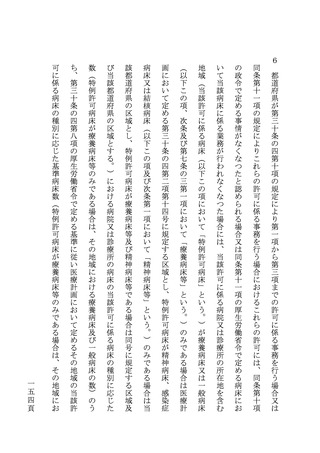 6
都道府県が第三十条の四第十項の規定により第一項から第三項までの許可に係る事務を行う場合又は
同条第十一項の規定によりこれらの許可に係る事務を行う場合におけるこれらの許可には、同条第十項
の政令で定める事情がなくなつたと認められる場合又は同条第十一項の厚生労働省令で定める病床にお
いて当該病床に係る業務が行われなくなつた場合には、当該許可に係る病院又は診療所の所在地を含む
地域（当該許可に係る病床（以下この項において「特例許可病床」という。）が療養病床又は一般病床
（以下この項、次条及び第七条の三第一項において「療養病床等」という。）のみである場合は医療計
画において定める第三十条の四第二項第十四号に規定する区域とし、特例許可病床が精神病床、感染症
病床又は結核病床（以下この項及び次条第一項において「精神病床等」という。）のみである場合は当
該都道府県の区域とし、特例許可病床が療養病床等及び精神病床等である場合は同号に規定する区域及
び当該都道府県の区域とする。）における病院又は診療所の病床の当該許可に係る病床の種別に応じた
数（特例許可病床が療養病床等のみである場合は、その地域における療養病床及び一般病床の数）のう
ち、第三十条の四第八項の厚生労働省令で定める基準に従い医療計画において定めるその地域の当該許
可に係る病床の種別に応じた基準病床数（特例許可病床が療養病床等のみである場合は、その地域にお
一五四頁